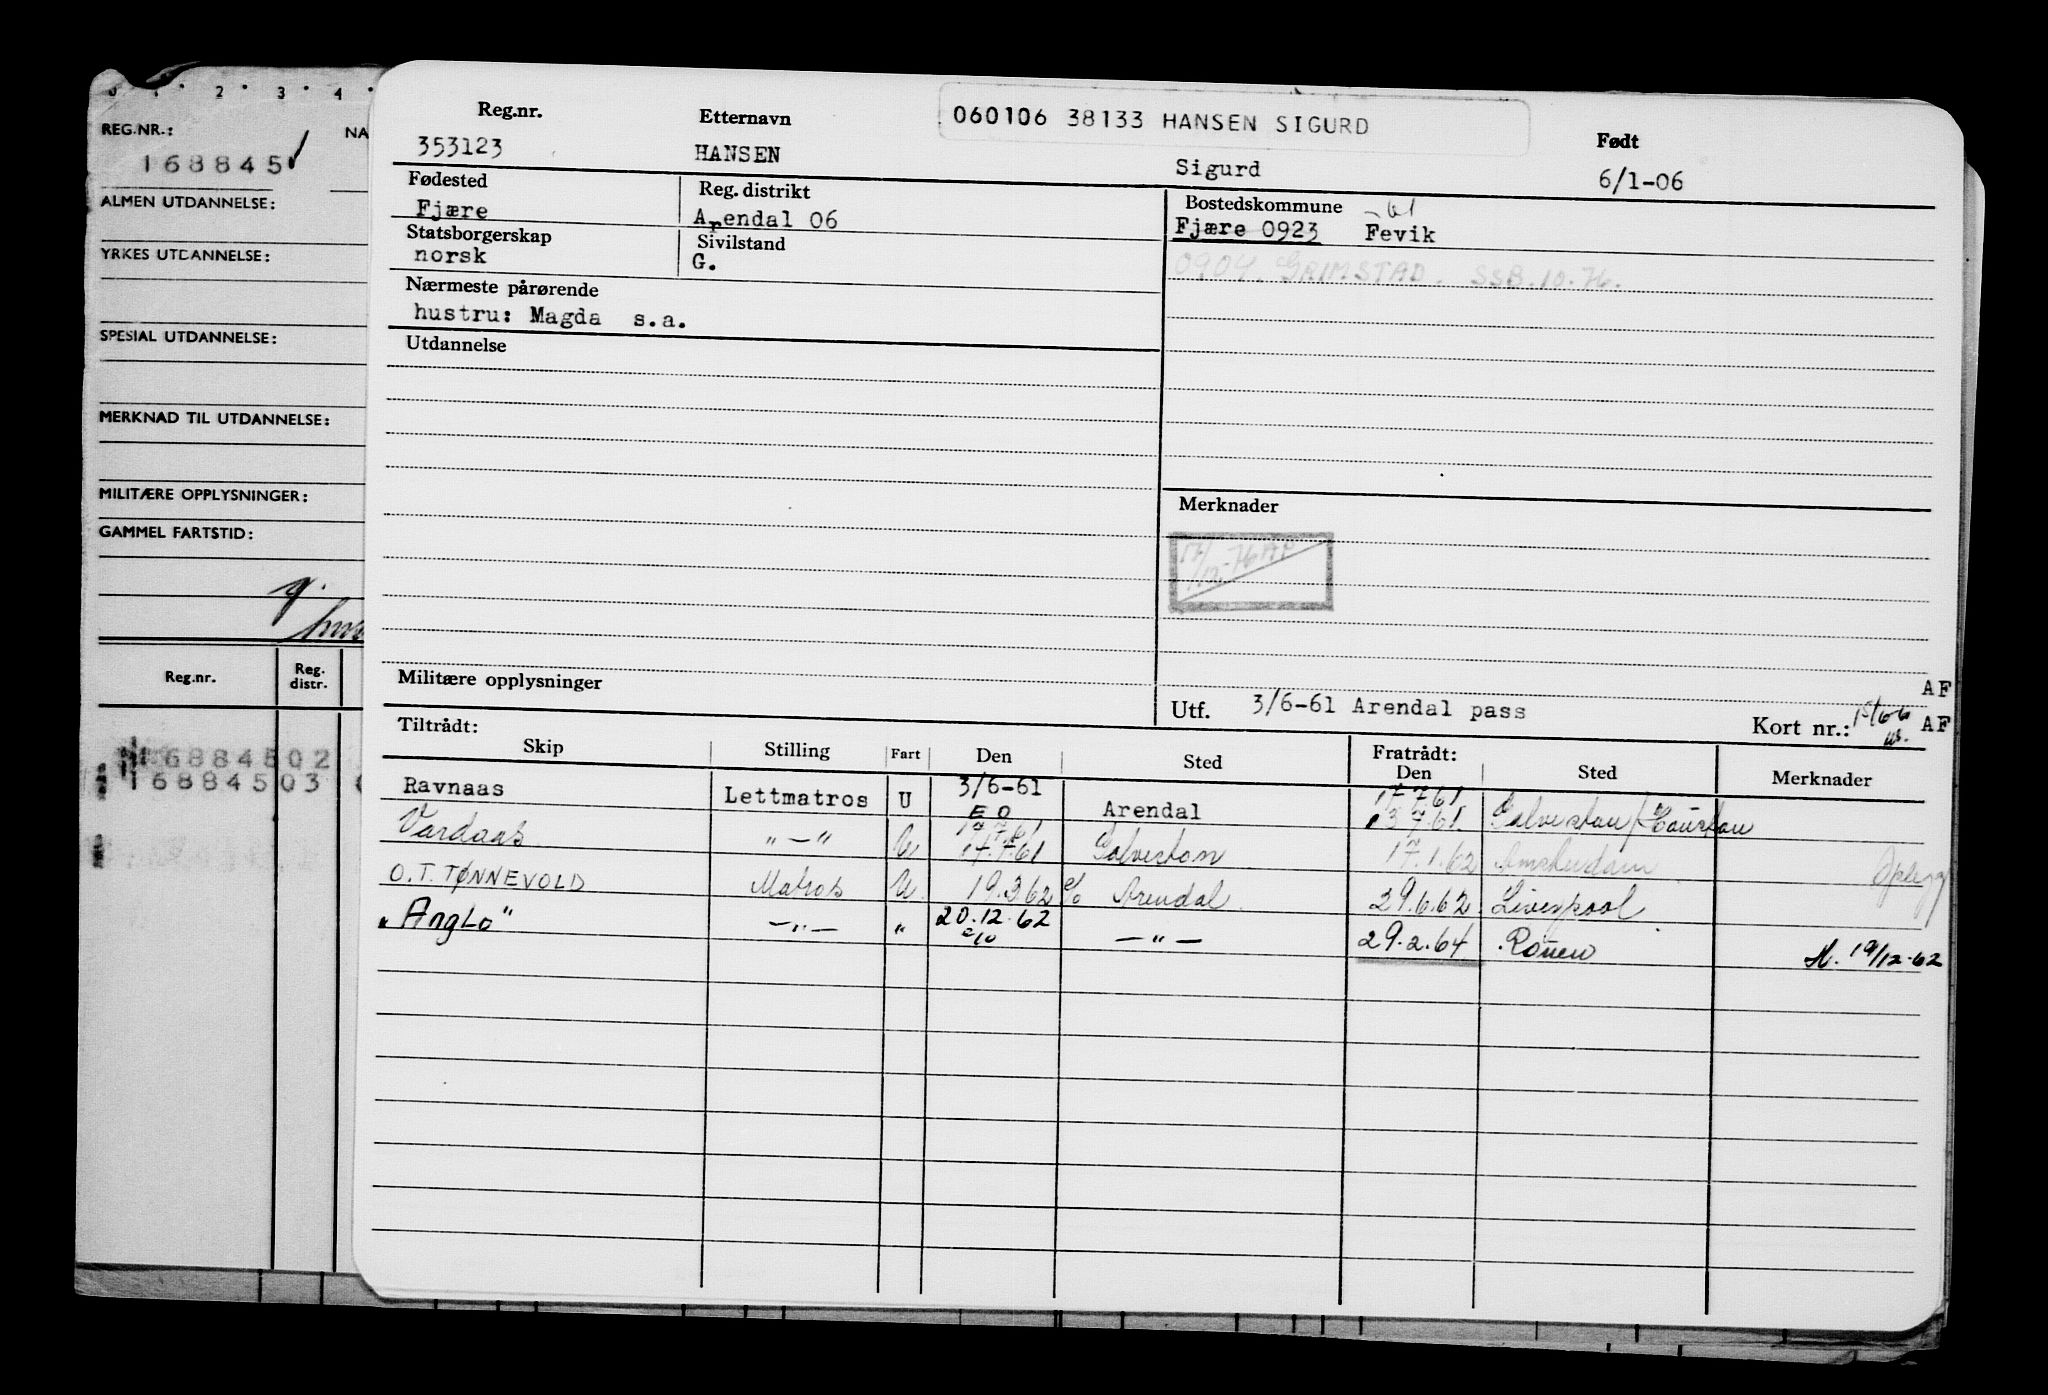 0 1 2 3 4
REG.NR.: NA
168845
ALMEN UTDANNELSE:
YRKES UTDANNELSE:
SPESIAL UTDANNELSE:
MERKNAD TIL UTDANNELSE:
MILITÆRE OPPLYSNINGER:
GAMMEL FARTSTID:
Reg.nr. Reg. distr.
16884502
16884503
060106 38133 HANSEN SIGURD
Reg.nr. Etternavn Født
353123 HANSEN Sigurd 6/1-06
Fødested Reg. distrikt Bostedskommune
Fjære Arendal 06 Fjære 0923 Fevik -61
Statsborgerskap Sivilstand
norsk G.
0904. GRIMSTAD. SSB.10.76.
Nærmeste pårørende
hustru: Magda s.a.
Utdannelse
Merknader
Militære opplysninger
AF
Utf. 3/6-61 Arendal pass Kort nr.: AF
Tiltrådt: Fratrådt:
Skip Stilling Fart Den Sted Den Sted Merknader
Ravnaas Lettmatros U 3/6-61 E O Arendal 17.7.61 Galveston/Houston
Vardaas " — " U 17.7.61 Galveston 17.1.62 Amsterdam
O.T. TØNNEVOLD Matros U 19.3.62 e/o Arendal 29.6.62 Liverpool
"Anglo" — " — " 20.12.62 e/o — " — 29.2.64 Rouen M. 19/12-62